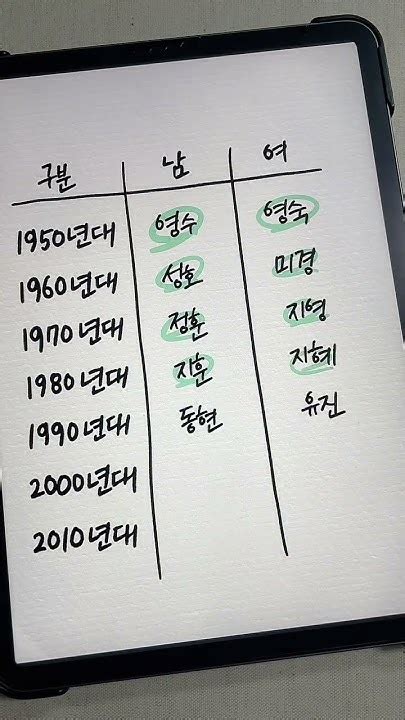 구분 남 여
1950년대 영수 영숙
1960년대 성호 미경
1970년대 정훈 지영
1980년대 지훈 지혜
1990년대 동현 유진
2000년대
2010년대